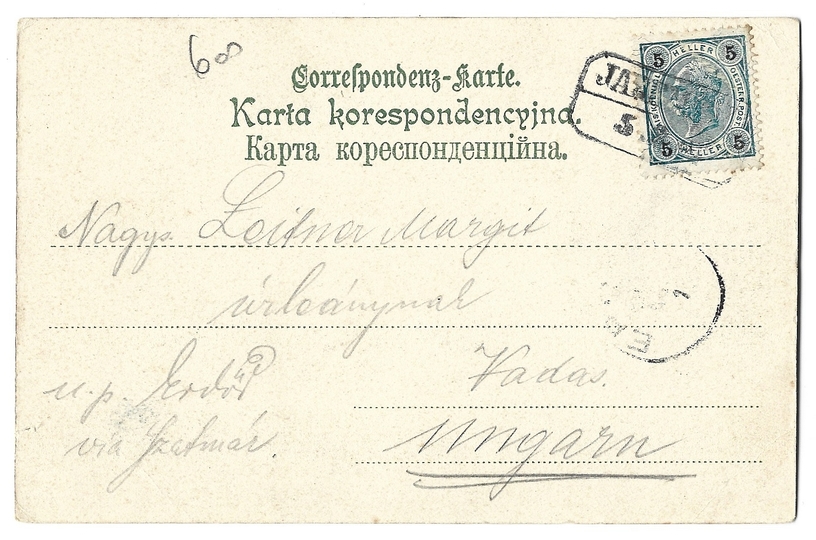 600
Correspondenz-Karte.
Karta korespondencyjna.
Карта кореспонденційна.
5 HELLER 5
5 HELLER 5
JAR
5
Nagys. Leitner Margit
úrleánynak
u. p. Erdőd
Vadas.
via Szatmár.
Ungarn